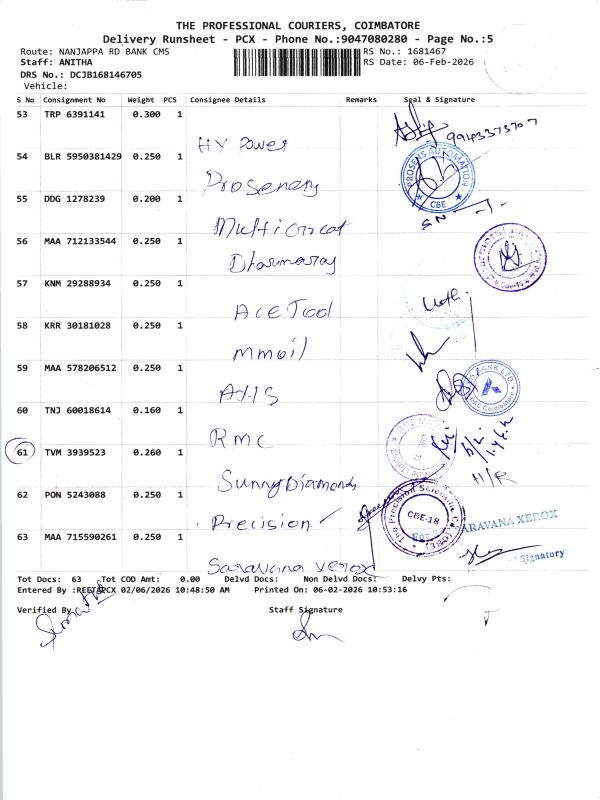 THE PROFESSIONAL COURIERS, COIMBATORE
Delivery Runsheet - PCX - Phone No.:9047080280 - Page No.:5
Route: NANJAPPA RD BANK CMS
RS No.: 1681467
Staff: ANITHA
RS Date: 06-Feb-2026
DRS No.: DCJB168146705
Vehicle:
S No Consignment No Weight PCS Consignee Details Remarks Seal & Signature
53 TRP 6391141 0.300 1
HV Power
9943373707
54 BLR 5950381429 0.250 1
PROSENS AUTOMATION
CBE
55 DDG 1278239 0.200 1
Multicircat
56 MAA 712133544 0.250 1
Dharmaraj
57 KNM 29288934 0.250 1
Ace Tool
58 KRR 30181028 0.250 1
mmoil
59 MAA 578206512 0.250 1
AXIS
60 TNJ 60018614 0.160 1
RMC
61 TVM 3939523 0.260 1
Sunny Diamonds
H/R
62 PON 5243088 0.250 1
Precision
The Precision Scientific Co (CBE)
CBE-18
63 MAA 715590261 0.250 1
Saravana Xerox
ARAVANA XEROX
Signatory
Tot Docs: 63 Tot COD Amt: 0.00 Delvd Docs: Non Delvd Docs: Delvy Pts:
Entered By :REETAPCX 02/06/2026 10:48:50 AM Printed On: 06-02-2026 10:53:16
Verified By
Staff Signature